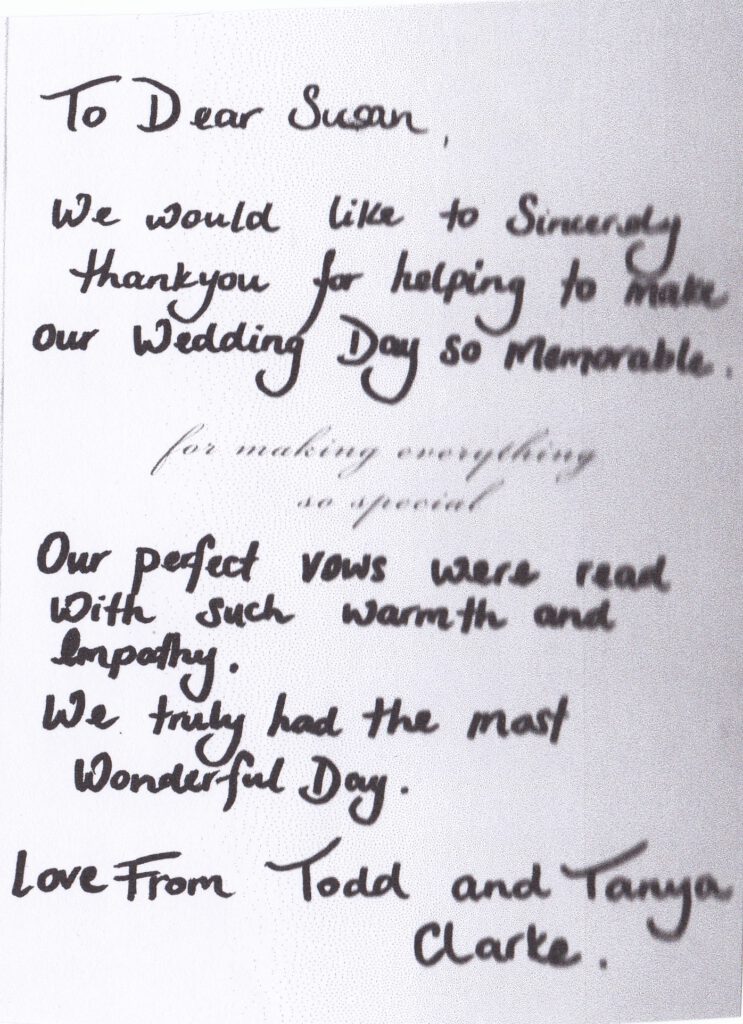 To Dear Susan,
We would like to Sincerely
thankyou for helping to make
our Wedding Day so Memorable.
for making everything
so special
Our perfect vows were read
with such warmth and
Empathy.
We truly had the most
Wonderful Day.
Love From Todd and Tanya
Clarke.